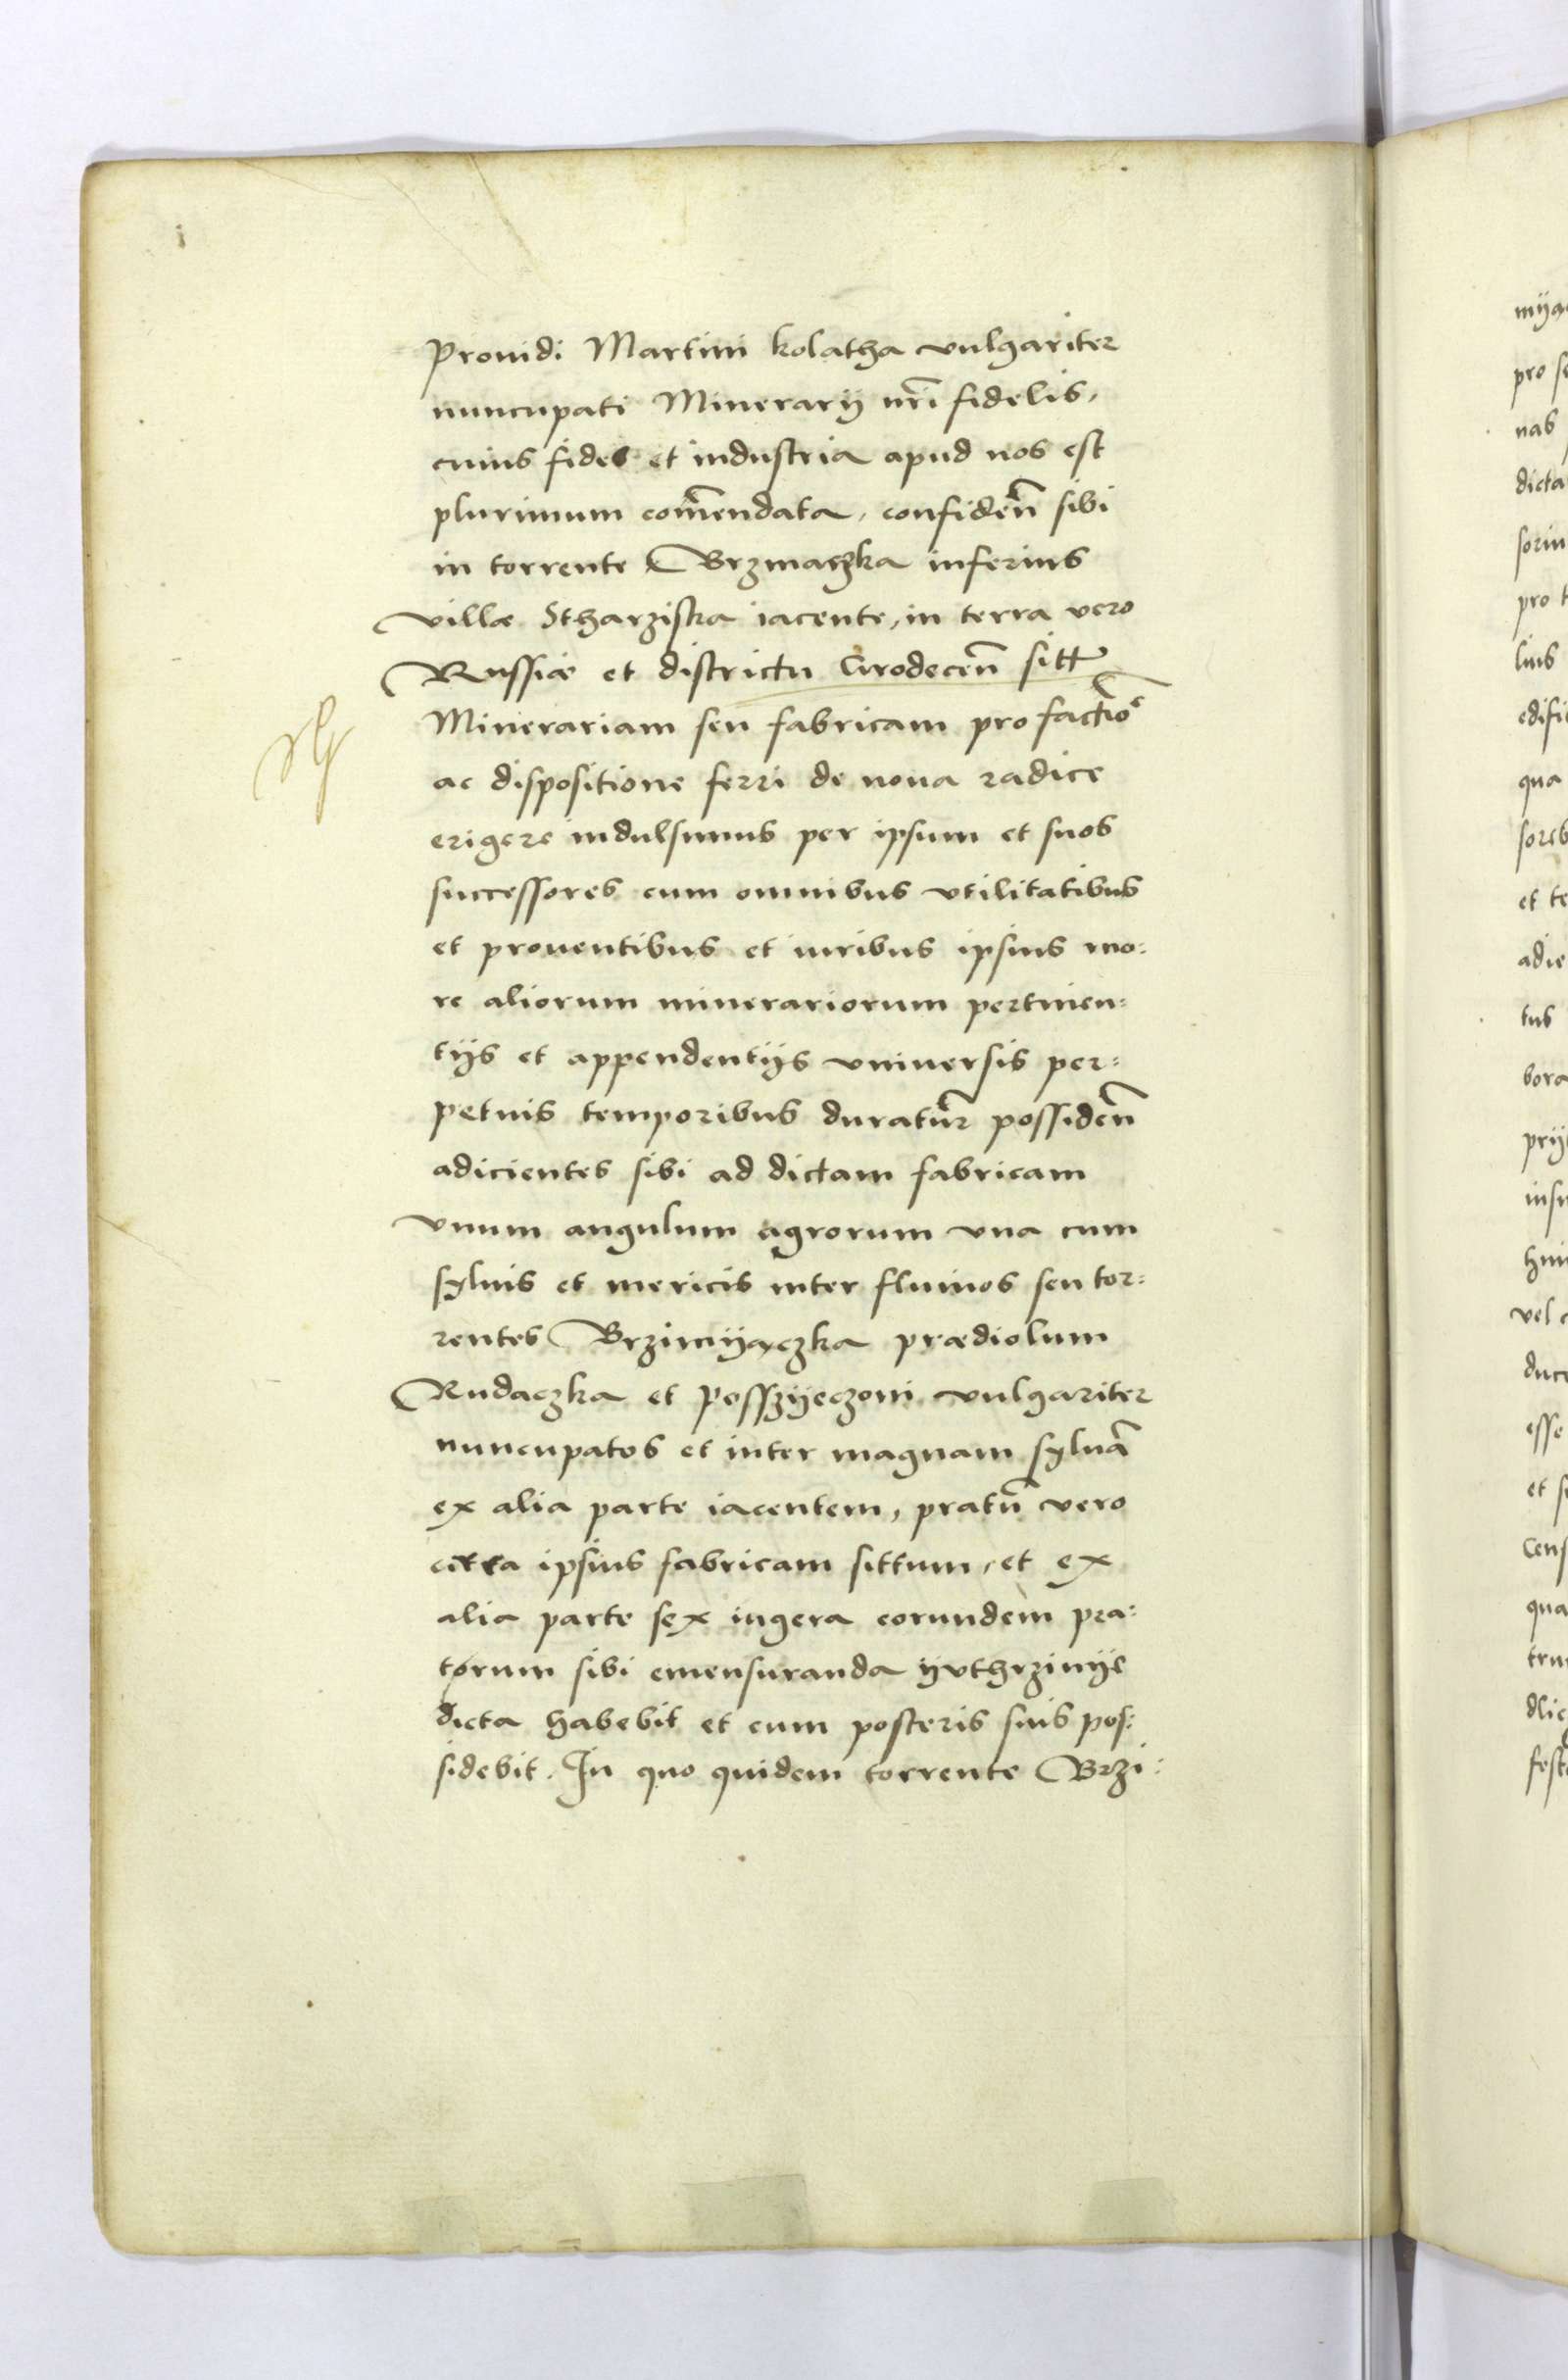 Prouidi Martini kolatha vulgariter
nuncupati Minerarij nr̃i fidelis,
cuius fides et industria apud nos est
plurimum com̃endata, confideñ sibi
in torrente Brzmaczka inferius
villæ Stharziska iacente, in terra vero
Russiæ et districtu Grodeceñ sitt
Minerariam seu fabricam pro factio͂e
ac dispositione ferri de noua radice
erigere indulsimus per ipsum et suos
successores cum omnibus vtilitatibus
et prouentibus et iuribus ipsius mo:
re aliorum minerariorum pertinen:
tijs et appendentijs vniuersis per:
petuis temporibus duratur̃ possideñ
adicientes sibi ad dictam fabricam
vnum angulum agrorum vna cum
syluis et mericis inter fluuios seu tor:
rentes Brzimijaczka prædiolum
Rudaczka et Posszijeczoni vulgariter
nuncupatos et inter magnam syluã
ex alia parte iacentem, pratũ vero
citra ipsius fabricam sittum, et ex
alia parte sex iugera eorundem pra:
torum sibi emensuranda ijvthrzinije
dicta habebit et cum posteris suis pos:
sidebit. In quo quidem torrente Brzi:
mija
pro se
nas
dicta
sorin
pro t
lius
edifi
qua
soreb
et te
adie
tus
bora
prij
insu
hui
vel
duce
esse
et s
Cens
qua
tru
dlic
fest